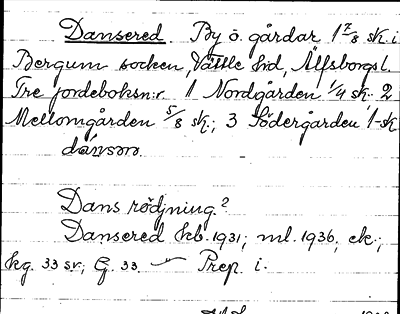 Dansered By ö. gårdar 1 7/8 sk. i
Bergum socken, Vättle hd, Älfsborgs l.
Tre jordeboksn:r. 1 Nordgården 1/4 sk. 2
Mellomgården 5/8 sk.; 3 Södergården 1 sk
Dans rödjning?
Dansered kb. 1931; ml. 1936, ek.;
kg. 33 sv; G. 33. Prep i.